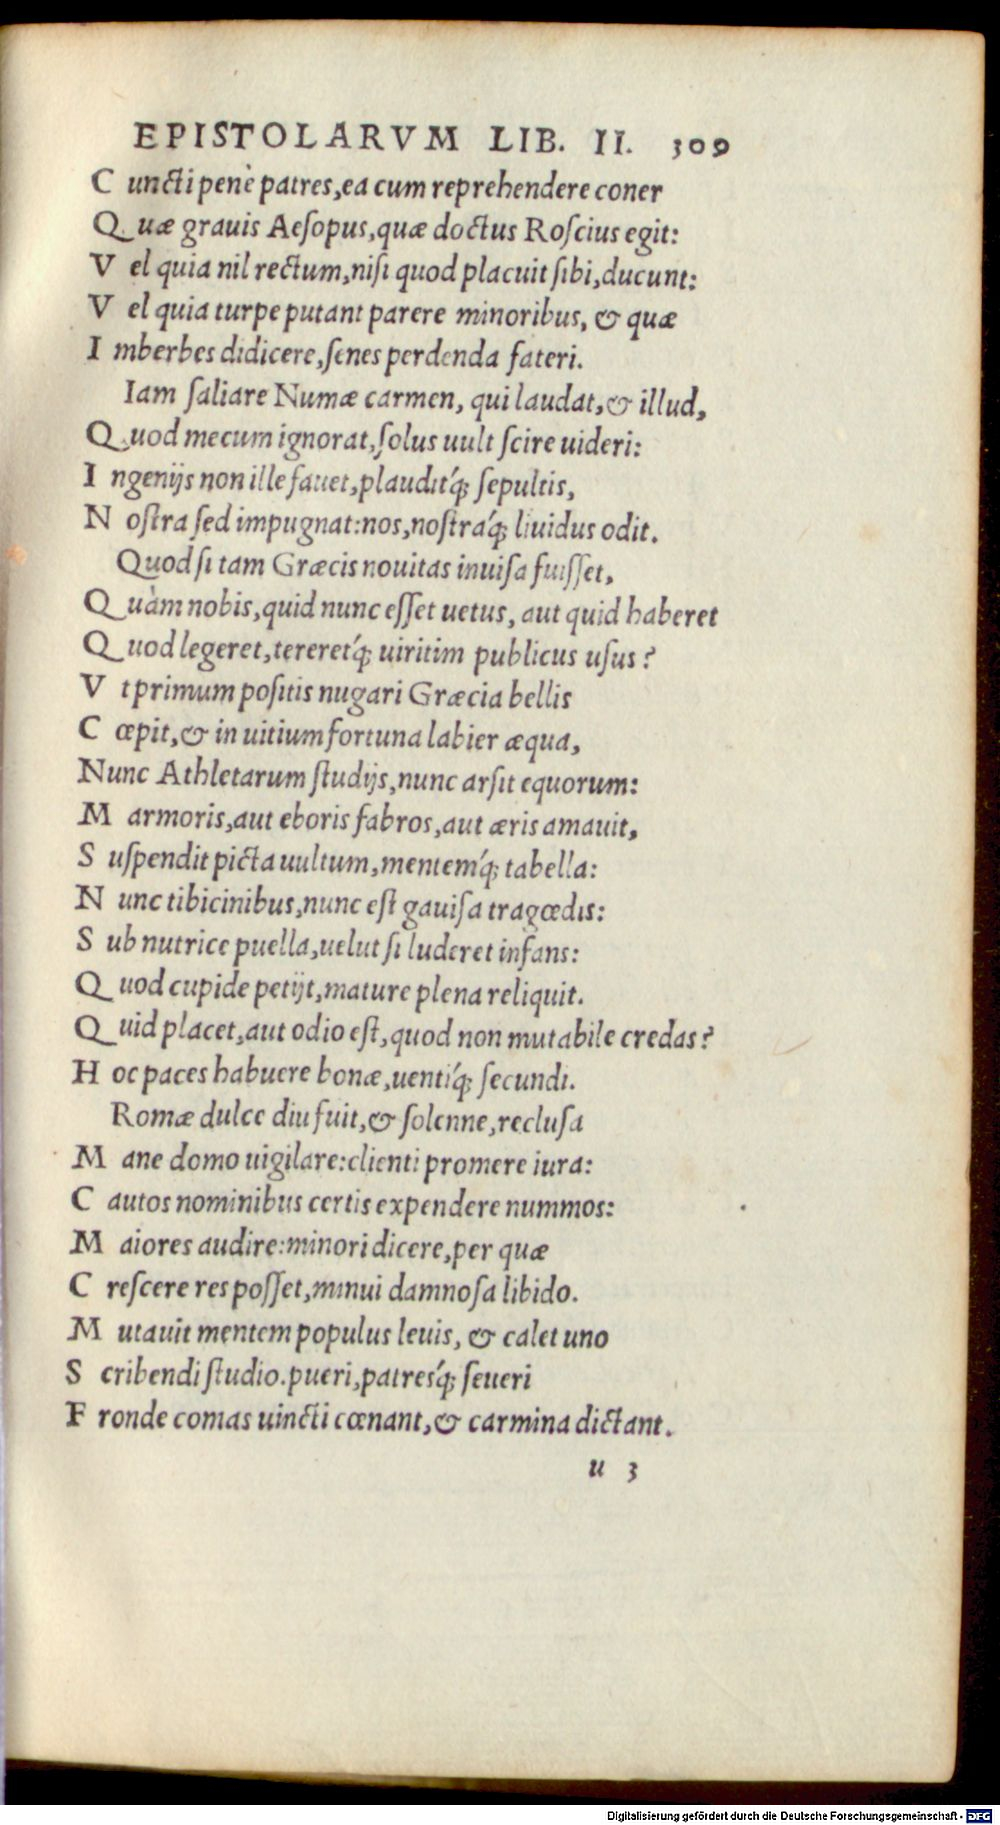 EPISTOLARVM LIB. II. 309
C uncti penè patres,ea cum reprehendere coner
Q uæ grauis Aeſopus,quæ doctus Roſcius egit:
V el quia nil rectum,niſi quod placuit ſibi,ducunt:
V el quia turpe putant parere minoribus, & quæ
I mberbes didicere,ſenes perdenda fateri.
Iam ſaliare Numæ carmen, qui laudat,& illud,
Q uod mecum ignorat,ſolus uult ſcire uideri:
I ngenijs non ille fauet,plauditq́; ſepultis,
N oſtra ſed impugnat:nos,noſtraq́; liuidus odit.
Quod ſi tam Græcis nouitas inuiſa fuiſſet,
Q uàm nobis,quid nunc eſſet uetus, aut quid haberet
Q uod legeret,tereretq́; uiritim publicus uſus?
V t primum poſitis nugari Græcia bellis
C œpit,& in uitium fortuna labier æqua,
Nunc Athletarum ſtudijs,nunc arſit equorum:
M armoris,aut eboris fabros,aut æris amauit,
S uſpendit picta uultum,mentemq́; tabella:
N unc tibicinibus,nunc eſt gauiſa tragœdis:
S ub nutrice puella,uelut ſi luderet infans:
Q uod cupide petijt,mature plena reliquit.
Q uid placet,aut odio eſt,quod non mutabile credas?
H oc paces habuere bonæ,uentiq́; ſecundi.
Romæ dulce diu fuit,& ſolenne,recluſa
M ane domo uigilare:clienti promere iura:
C autos nominibus certis expendere nummos:
M aiores audire:minori dicere,per quæ
C reſcere res poſſet,minui damnoſa libido.
M utauit mentem populus leuis, & calet uno
S cribendi ſtudio.pueri,patresq́; ſeueri
F ronde comas uincti cœnant,& carmina dictant.
u 3
Digitalisierung gefördert durch die Deutsche Forschungsgemeinschaft - DFG